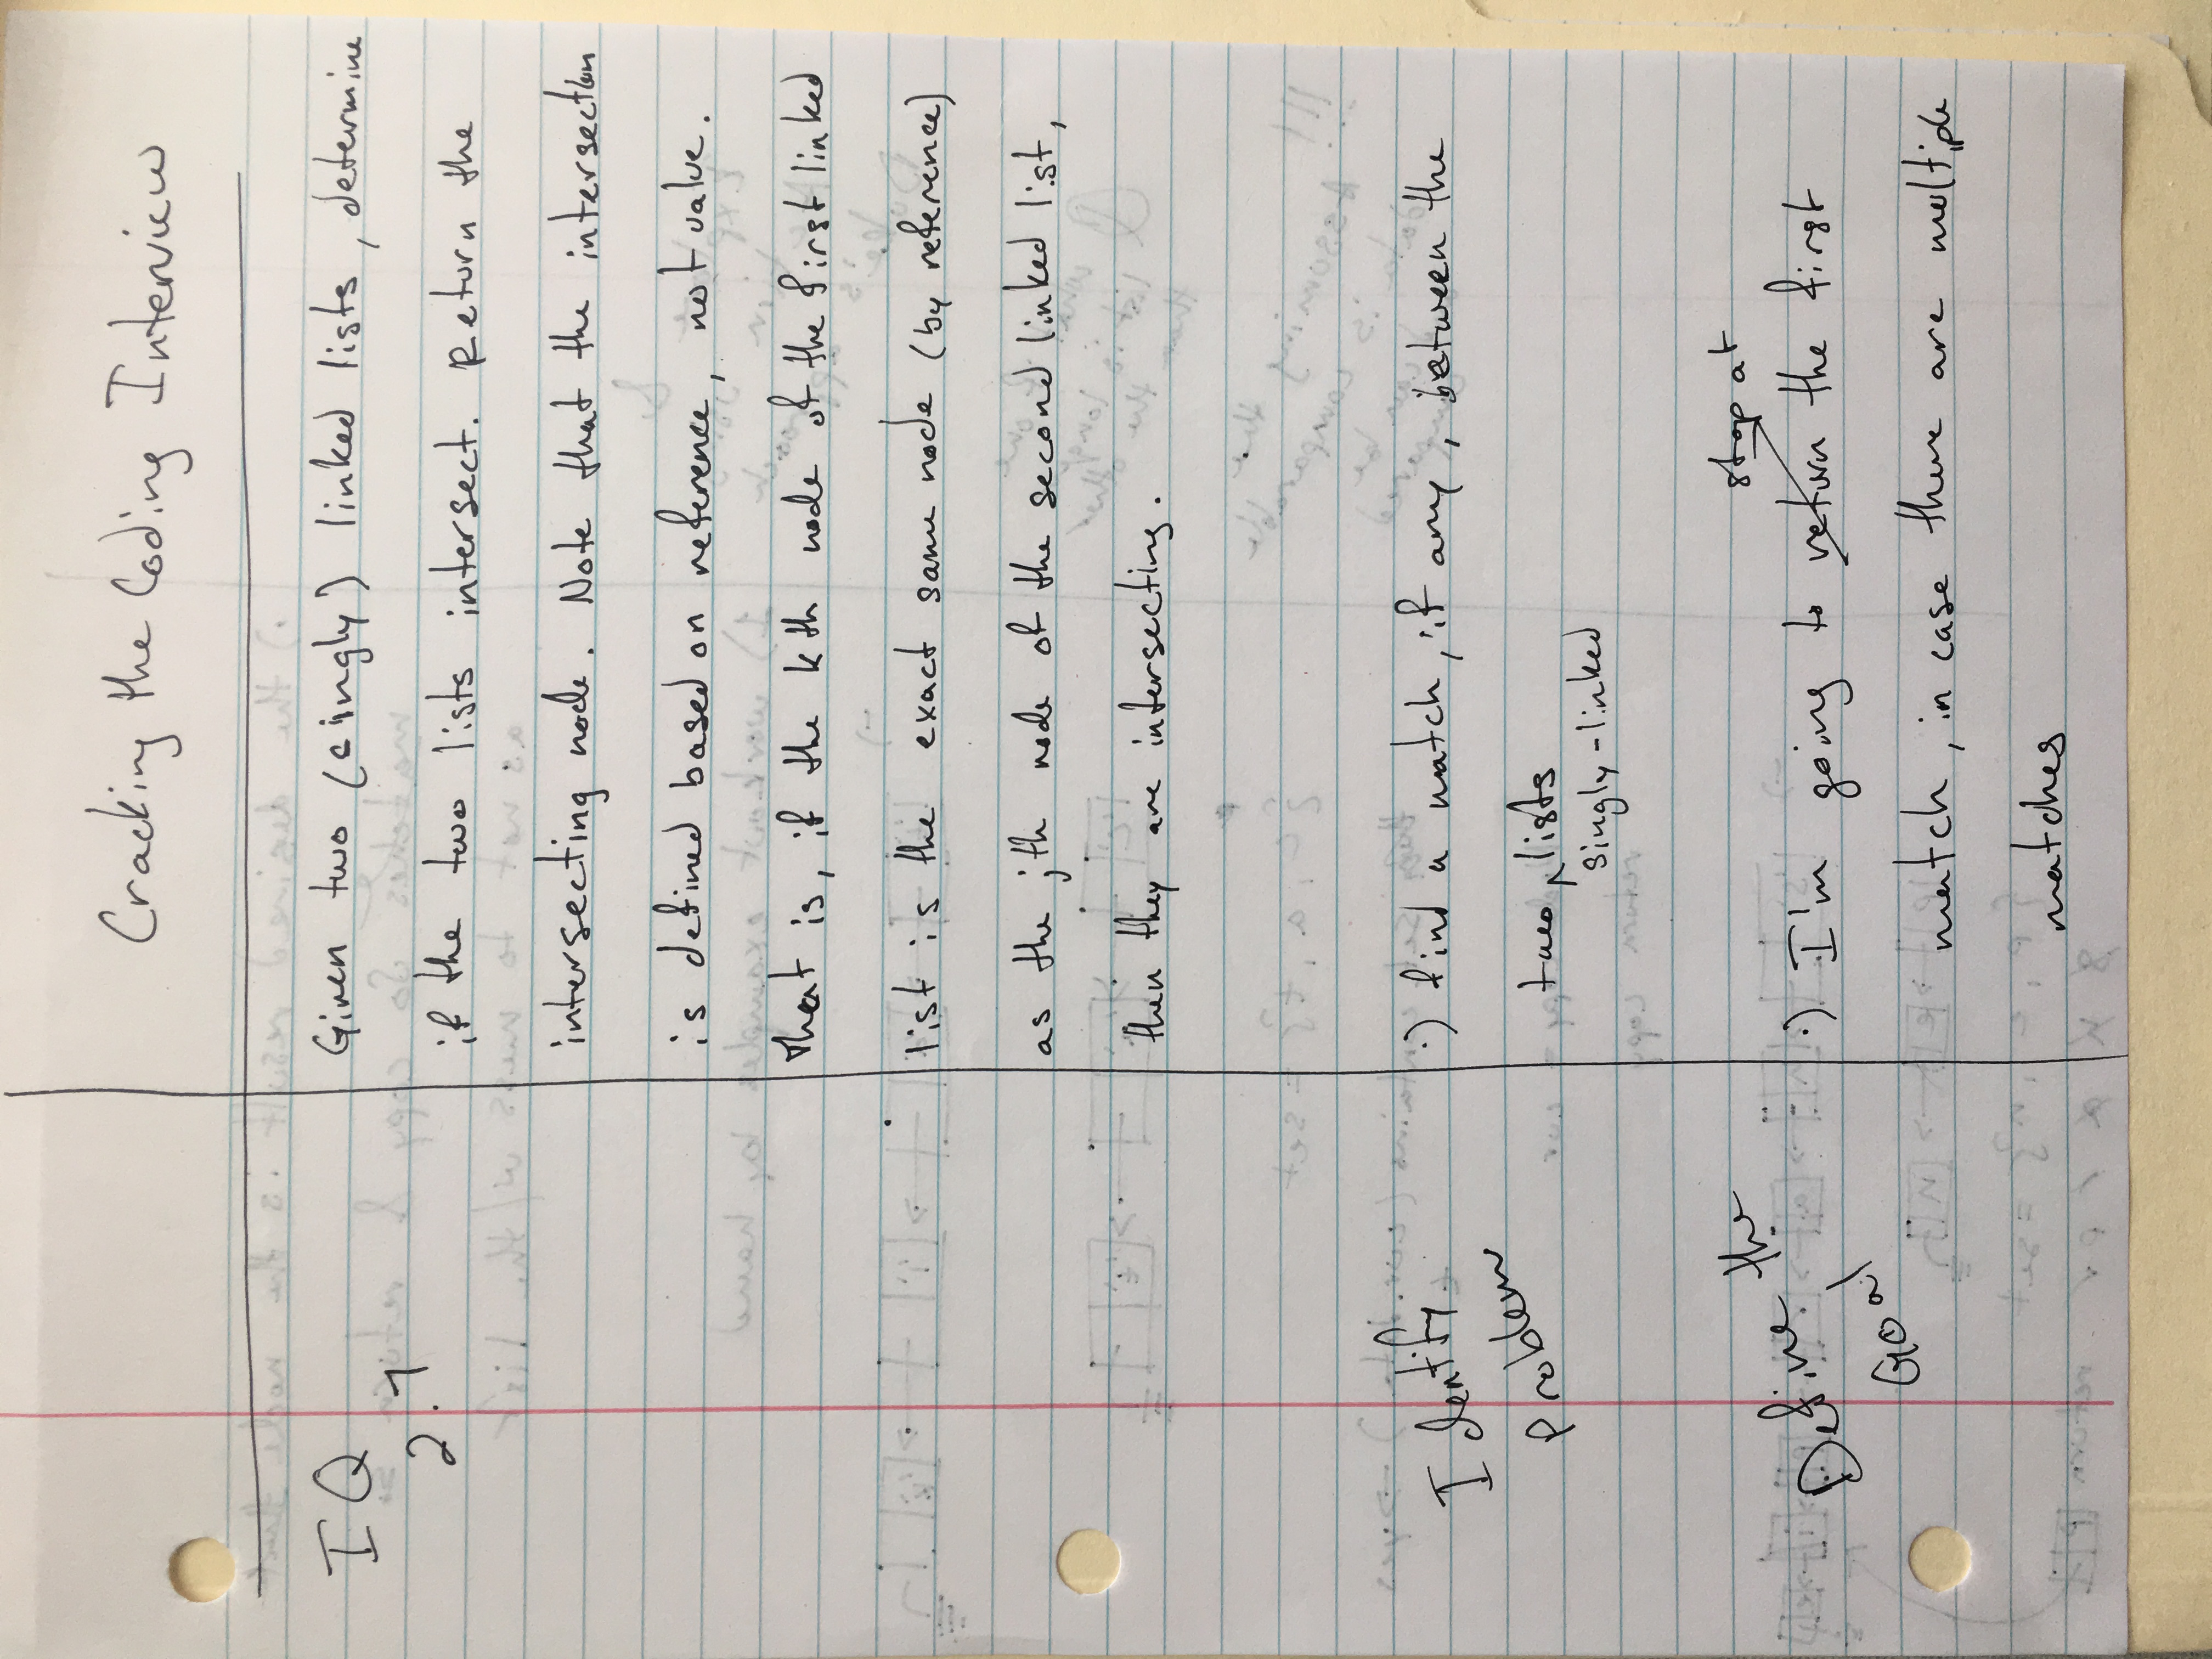 Cracking the Coding Interview
IQ
2.7
Given two (singly) linked lists, determine
if the two lists intersect. Return the
intersecting node. Note that the intersection
is defined based on reference, not value.
That is, if the kth node of the first linked
list is the exact same node (by reference)
as the jth node of the second linked list,
then they are intersecting.
Identify
Problem
·) find a match, if any, between the
two lists
singly-linked
Define the
Goal
stop at
·) I'm going to return the first
match, in case there are multiple
matches